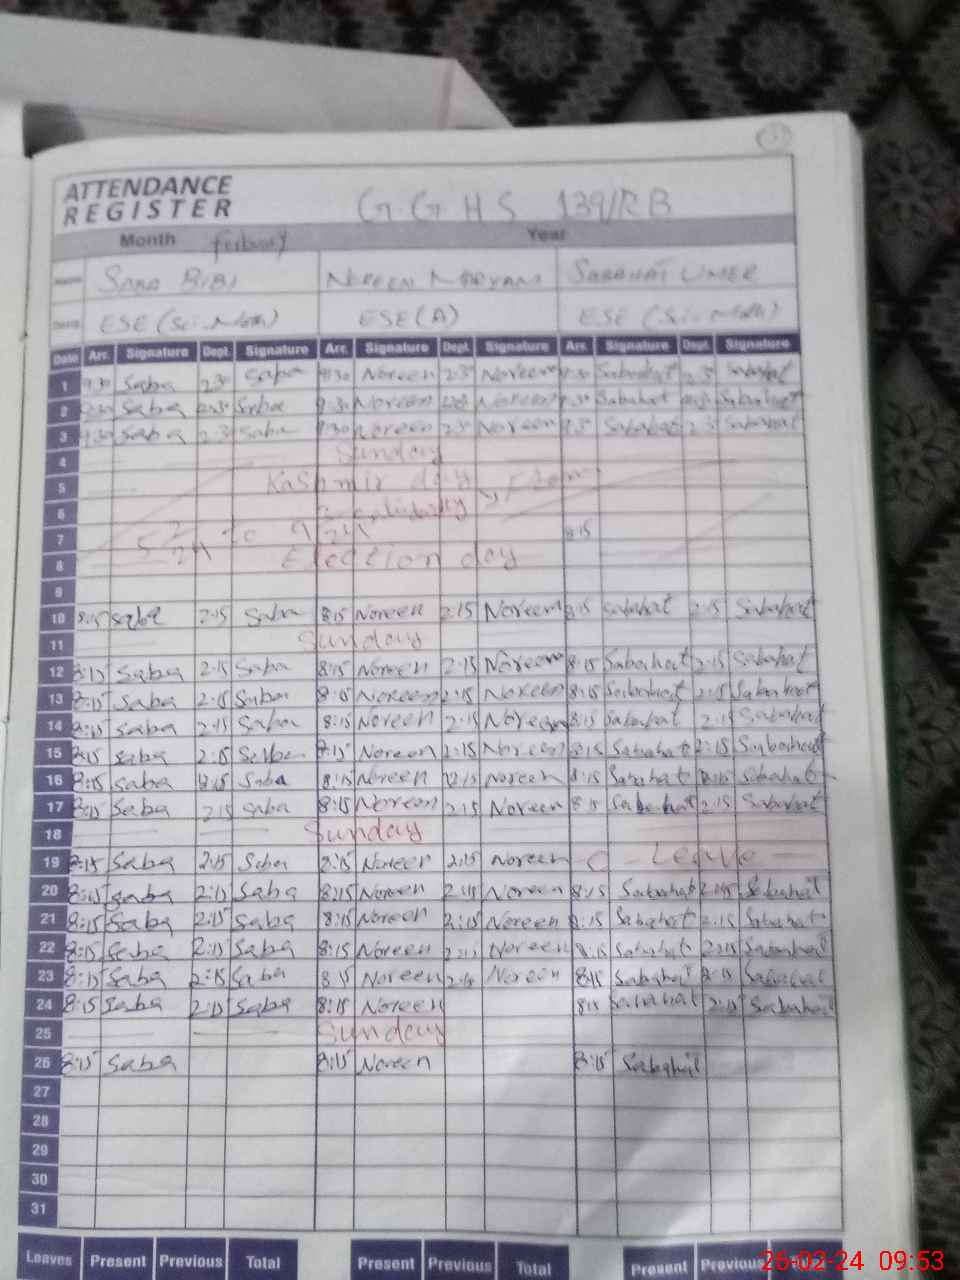 ATTENDANCE
REGISTER
G.G H S 139/RB
Month Year
SABA BIBI NOREEN MARYAM SABAHAT UMER
ESE (Sci-Math) ESE (A) ESE (Sci-Math)
Date Arr. Signature Dept. Signature Arr. Signature Dept. Signature Arr. Signature Dept. Signature
1 9:30 Saba 2:30 Saba 9:30 Noreen 2:30 Noreen 9:30 Sabahat 2:30 Sabahat
2 9:30 Saba 2:30 Saba 9:30 Noreen Noreen 9:30 Sabahat Sabahat
3 9:30 Saba 2:30 Saba 9:30 Noreen 2:30 Noreen 9:30 Sabahat 2:30 Sabahat
4 Sunday
5 Kashmir day
6
7 8:15
8 Election day
9
10 8:15 Saba 2:15 Saba 8:15 Noreen 2:15 Noreen 8:15 Sabahat 2:15 Sabahat
11 Sunday
12 8:15 Saba 2:15 Saba 8:15 Noreen 2:15 Noreen 8:15 Sabahat 2:15 Sabahat
13 8:15 Saba 2:15 Saba 8:15 Noreen 2:15 Noreen 8:15 Sabahat 2:15 Sabahat
14 8:15 Saba 2:15 Saba 8:15 Noreen 2:15 Noreen 8:15 Sabahat 2:15 Sabahat
15 8:15 Saba 2:15 Saba 8:15 Noreen 2:15 Noreen 8:15 Sabahat 2:15 Sabahat
16 8:15 Saba Saba 8:15 Noreen Noreen 8:15 Sabahat Sabahat
17 8:15 Saba 2:15 Saba 8:15 Noreen 2:15 Noreen 8:15 Sabahat 2:15 Sabahat
18 Sunday
19 8:15 Saba 2:15 Saba 8:15 Noreen 2:15 Noreen C Leave
20 8:15 Saba 2:15 Saba 8:15 Noreen 2:15 Noreen 8:15 Sabahat 2:15 Sabahat
21 8:15 Saba 2:15 Saba 8:15 Noreen 2:15 Noreen 8:15 Sabahat 2:15 Sabahat
22 8:15 Saba 2:15 Saba 8:15 Noreen 2:15 Noreen 8:15 Sabahat 2:15 Sabahat
23 8:15 Saba 2:15 Saba 8:15 Noreen 2:15 Noreen 8:15 Sabahat 2:15 Sabahat
24 8:15 Saba 2:15 Saba 8:15 Noreen 8:15 Sabahat 2:15 Sabahat
25 Sunday
26 8:15 Saba 8:15 Noreen 8:15 Sabahat
27
28
29
30
31
Leaves Present Previous Total Present Previous Total Present Previous
26-02-24 09:53